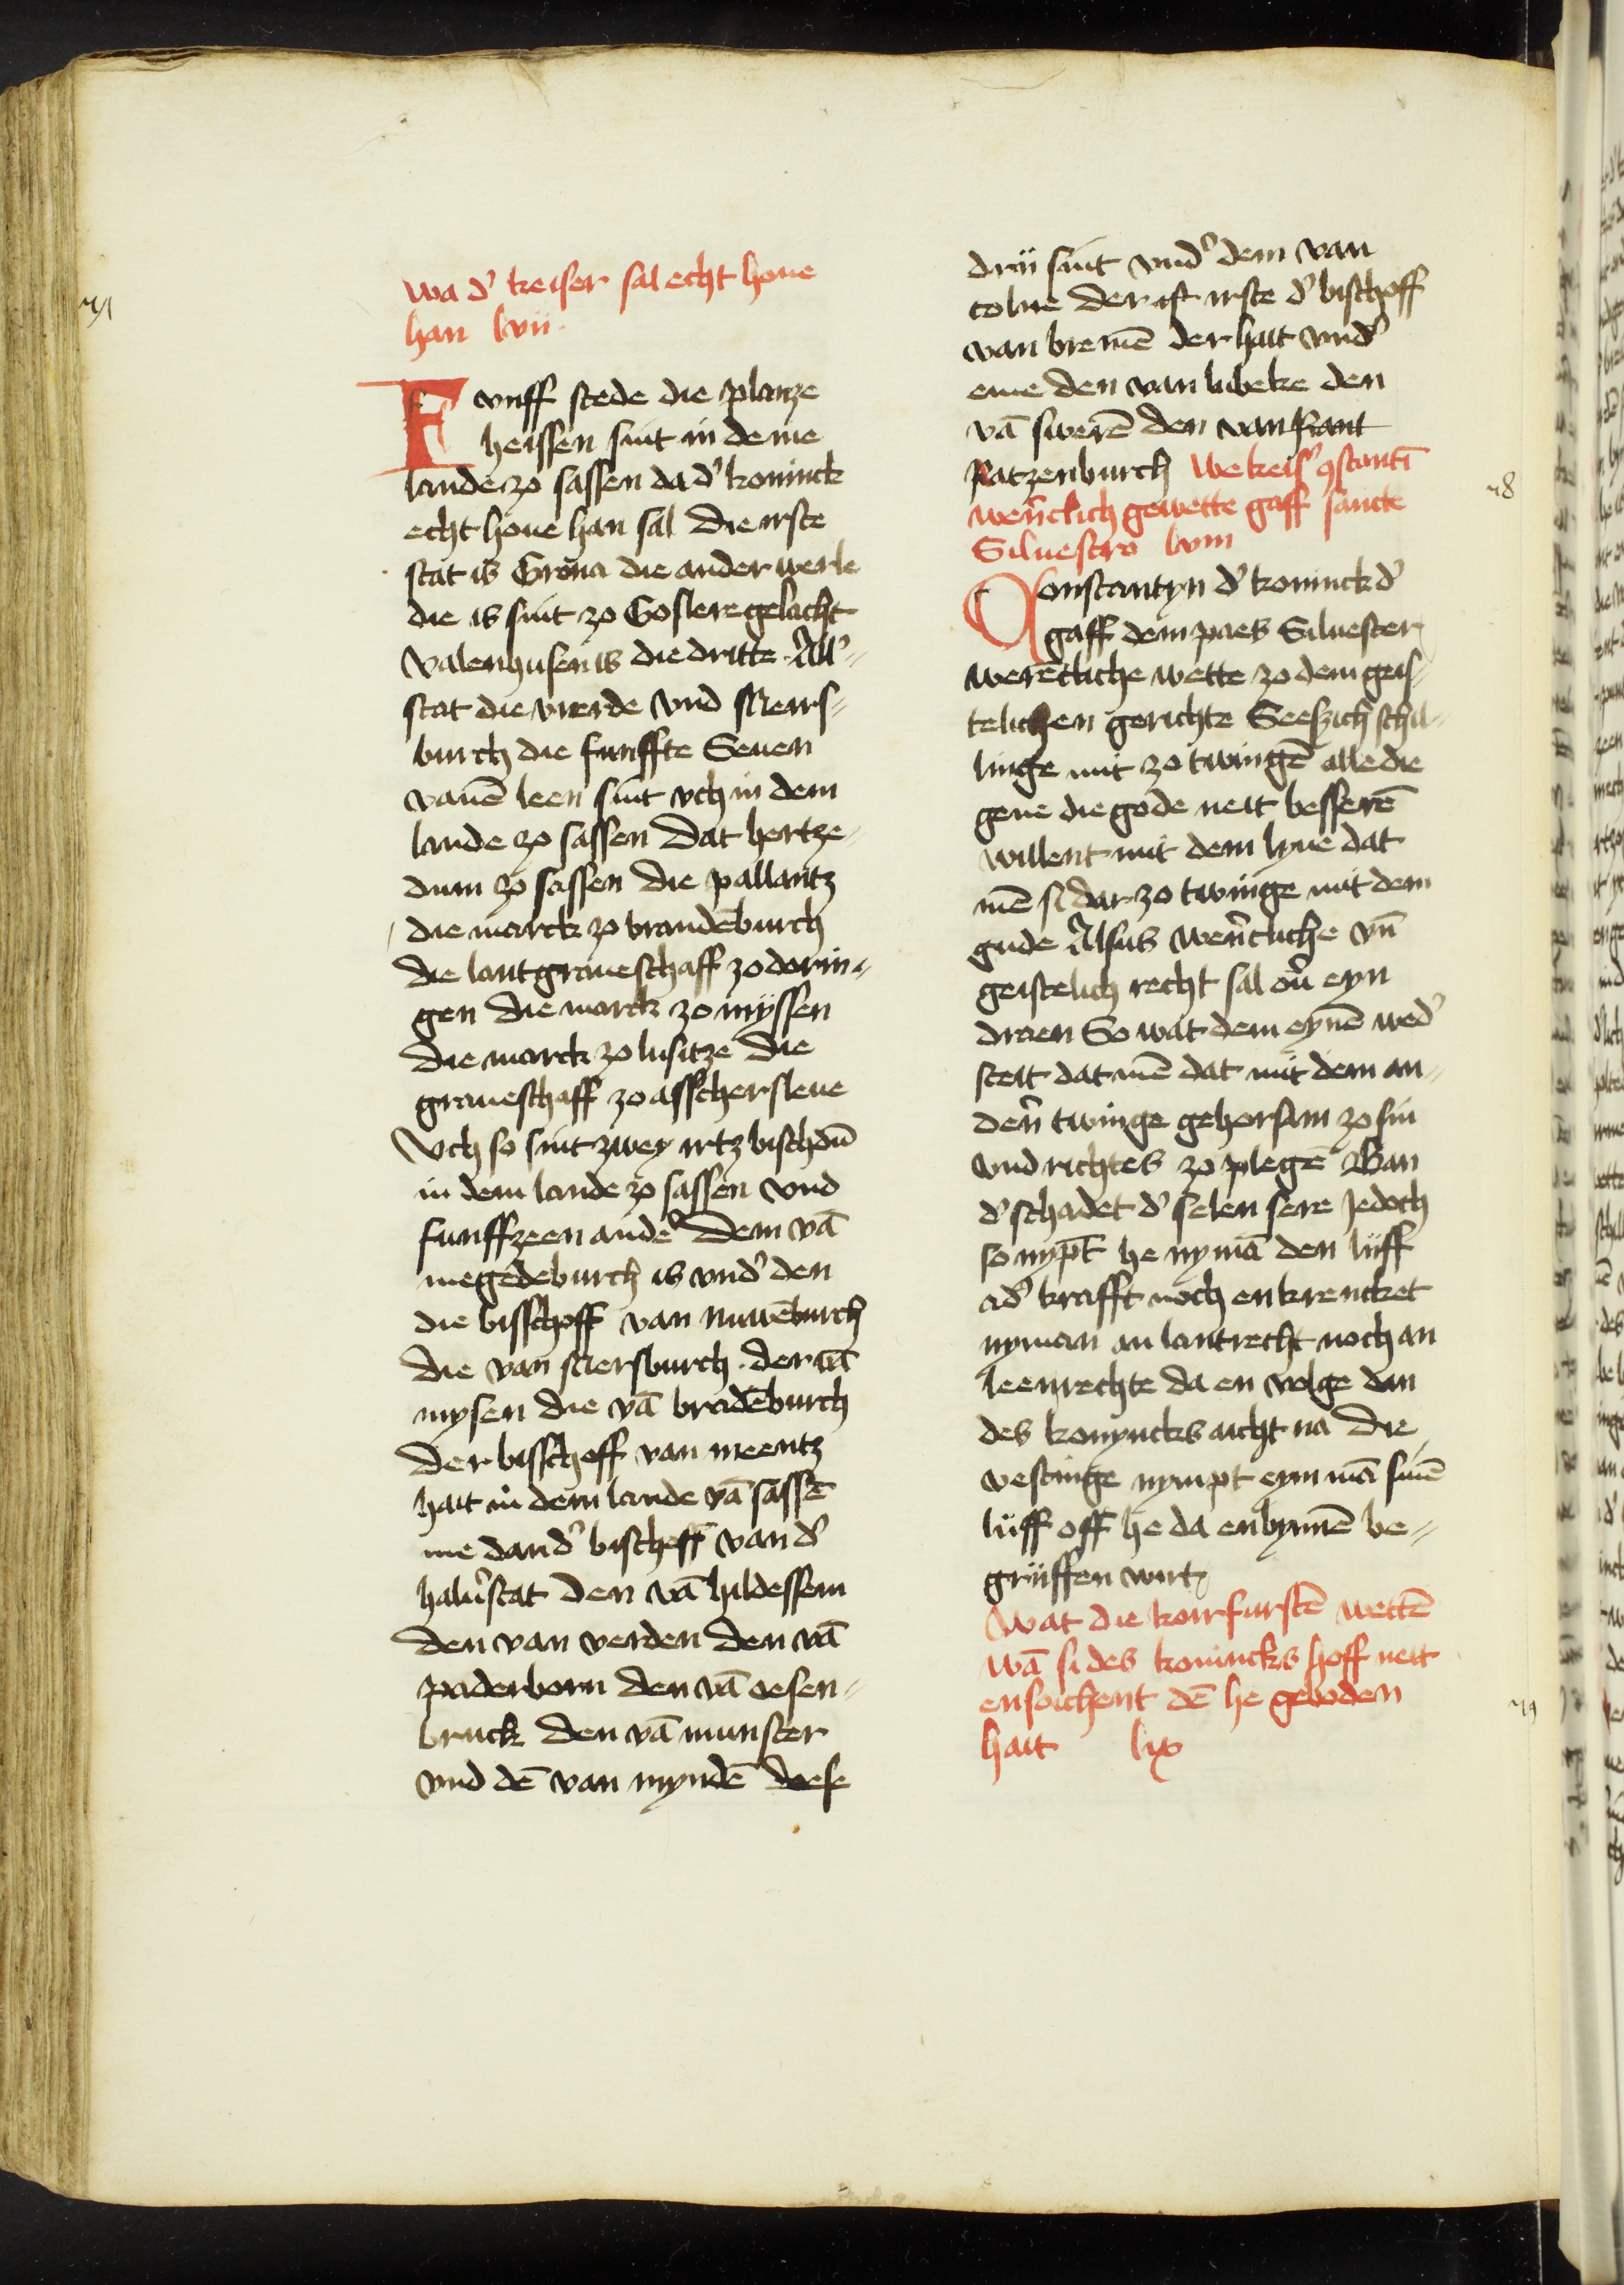 wa dˀ keiser sal echt houe
han lvii.
Fvnff stede die planze
heissen sint in deme
lande zo sassen da dˀ koninck
echt houe han sal Die irste
stat is Grona die ander werle
die is sint zo Goslere gelacht
Valenhusen is die dritte. All˜
stat die vierde vnd Mers˜
burch die funffte Seuen
vanē leen sint och in dem
lande zo sassen Dat hertze˜
dum zo sassen Die pallantz
die marck zo brandēburch
die lantgraueschaff zo dorin˜
gen Die marck zo myssen
Die marck zo lusitze Die
graueschaff zo asschersleue
Och so sint zwey irtzbischdū
in dem lande zo sassen vnd
funffzeen andeˀ Dem vā
megedeburch is vndˀ den
die bisschoff van nuwēburch
Die van Mersburch. der vā
mysen Die vā brādēburch
Der bisschoff van meentz
hait in dem lande vā sassē
me dan dˀ bischoff van dˀ
halūstat Den vā hildessem
den van verden Den vā
paderborn den vā oesen˜
bruck Den vā munster
vnd dē van myndē Dese
drii sint vndˀ dem van
colne Der ist irste dˀ bischoff
van bremē der hait vndˀ
eme den van lubeke den
vā swerē den van kant
Ratzenburch We keisˀ ꝯstantī
wer̄tlich gewette gaff sancte
Siluestro lviii
Constantyn dˀ koninck dˀ
gaff dem paes Siluester
werētliche wette zo dem geis˜
telichen gerichte Seeszich schil˜
linge mit zo twingē alle die
gene die gode neit besserē
willent mit dem lyue dat
mē si dar zo twinge mit dem
gude Alsus wer̄tliche vn̄
geistelich recht sal oū eyn
draen So wat dem eynē wedˀ
steit dat mē dat mit dem an˜
der̄ twinge gehorsam zo sin
vnd richtes zo plegē Ban
dˀ schadet dˀ selen sere Jedoch
so nypt he nymā den lüff
adˀ krafft noch en krencket
nyman an lantrecht noch an
leenrechte da en volge dan
des konyncks aicht na Die
vestinge nympt eym mā sinē
lüff off he da enbynnē be˜
grüffen wirt
Wat die koirfurstē wettē
wā si des konincks hoff neit
ensoichent dē he geboden
hait lix